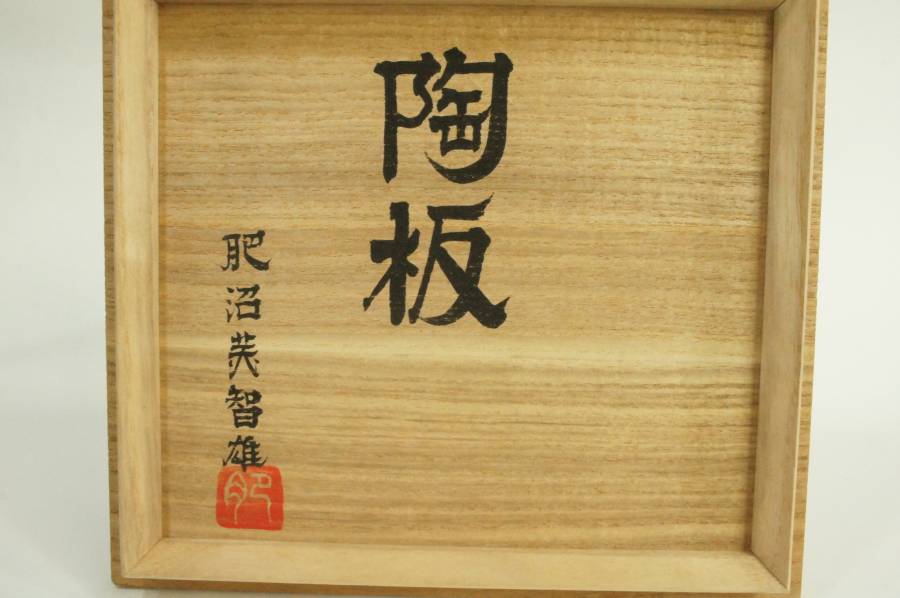 陶板
肥沼美智雄
肥